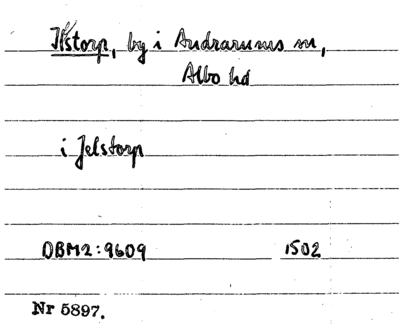 Ilstorp, by i Andrarums sn,
Albo hd
i Jelstorp
DBM2:9609 1502
Nr 5897.